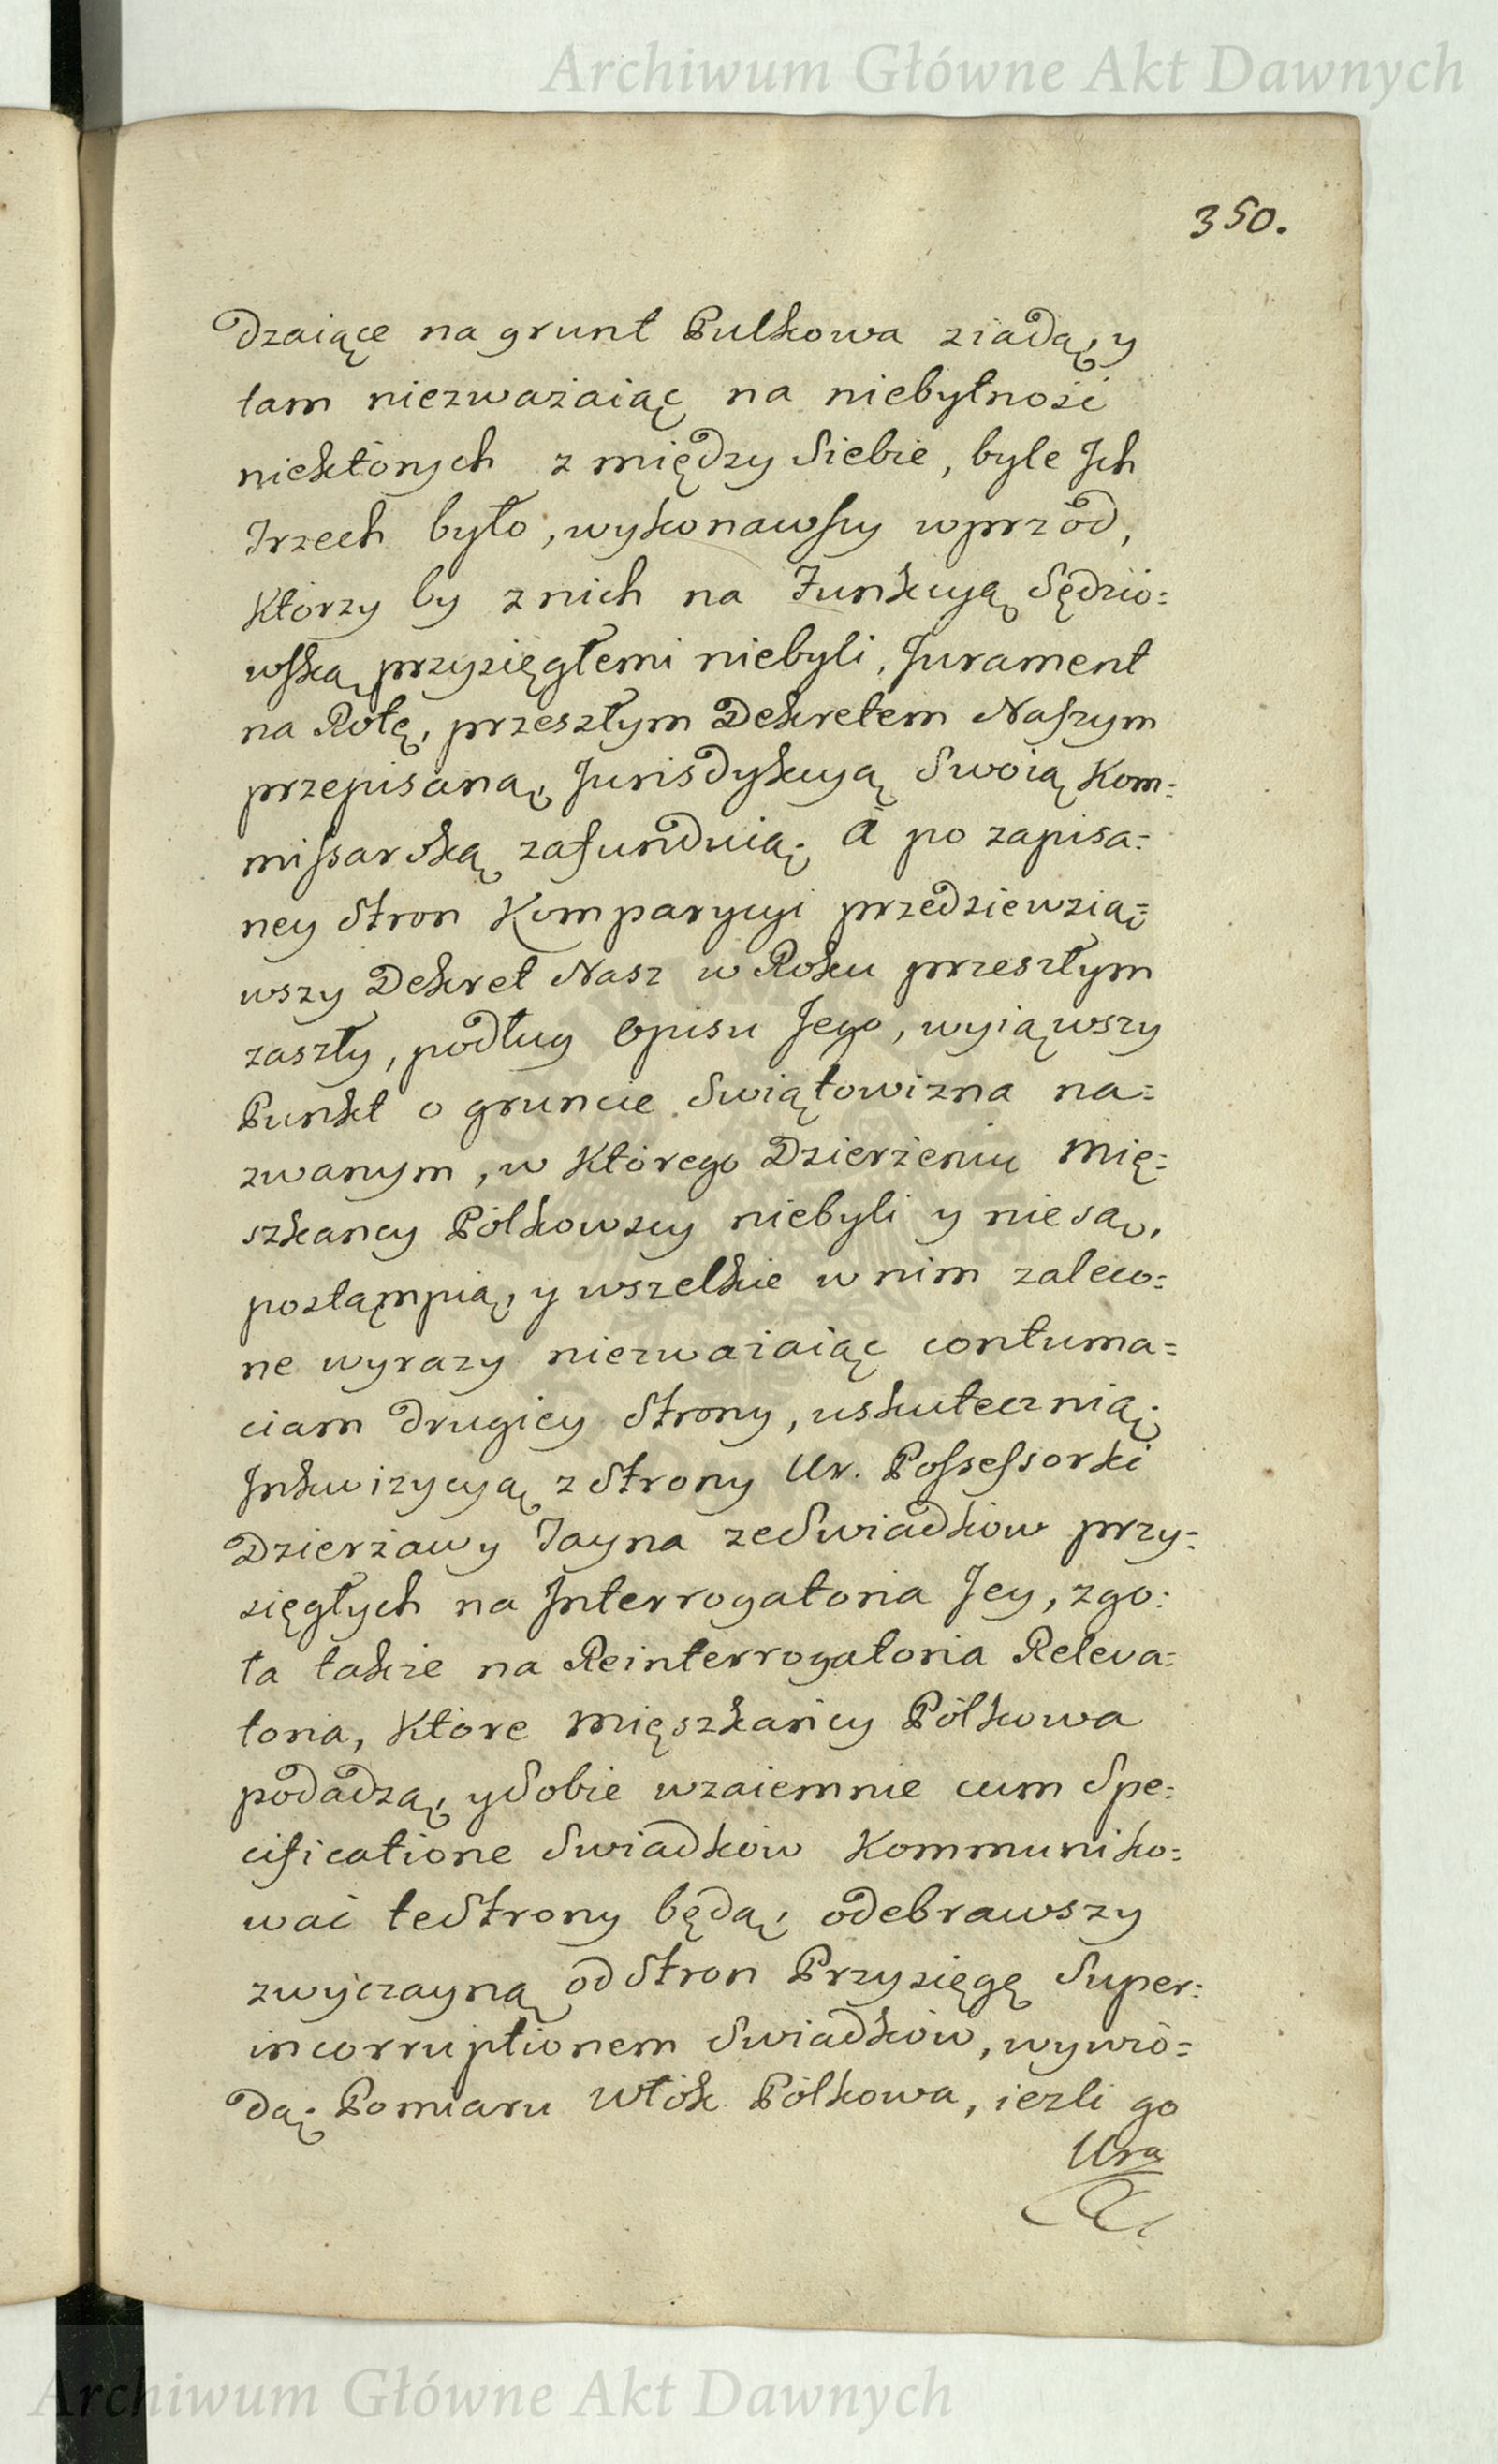 Archiwum Główne Akt Dawnych
350.
dzaiące na grunt Pulkowa ziadą, y
tam niezważaiąc na niebytność
niektórych z między Siebie, byle Jch
Trzech było, wykonawszy wprzód,
Którzy by z nich na Funkcyą Sędzio=
wską przysięgłemi niebyli, Jurament
na Rotę, przeszłym Dekretem Naszym
przepisaną, Jurisdykcyą Swoią Kom=
missarską zafunduią. A po zapisa=
ney Stron Komparycyi przedziewzią=
wszy Dekret Nasz w Roku przeszłym
zaszły, podług Opisu Jego, wyiąwszy
Punkt o gruncie Swiątowizna na=
zwanym, w Którego Dzierżeniu Mię=
szkancy Pólkowscy niebyli y nie są,
postąmpią, y wszelkie w nim zaleco=
ne wyrazy niezwaźaiąc contuma=
ciam drugiey Strony, uskutecznią.
Jnkwizycyą z Strony Ur. Possessorki
Dzierżawy Tayna ze Swiadkow przy=
sięgłych na Jnterrogatoria Jey, zgo=
ła także na Reinterrogatoria Releva=
toria, Które Mięszkańcy Pólkowa
podadzą, y Sobie wzaiemnie cum Spe=
cificatione Swiadków Kommuniko=
wać te Strony będą, odebrawszy
zwyczayną od Stron Przysięgę Super=
incorruptionem Swiadków, wywio=
dą. Pomiaru Włók Pólkowa, ieźli go
Ura
Archiwum Główne Akt Dawnych